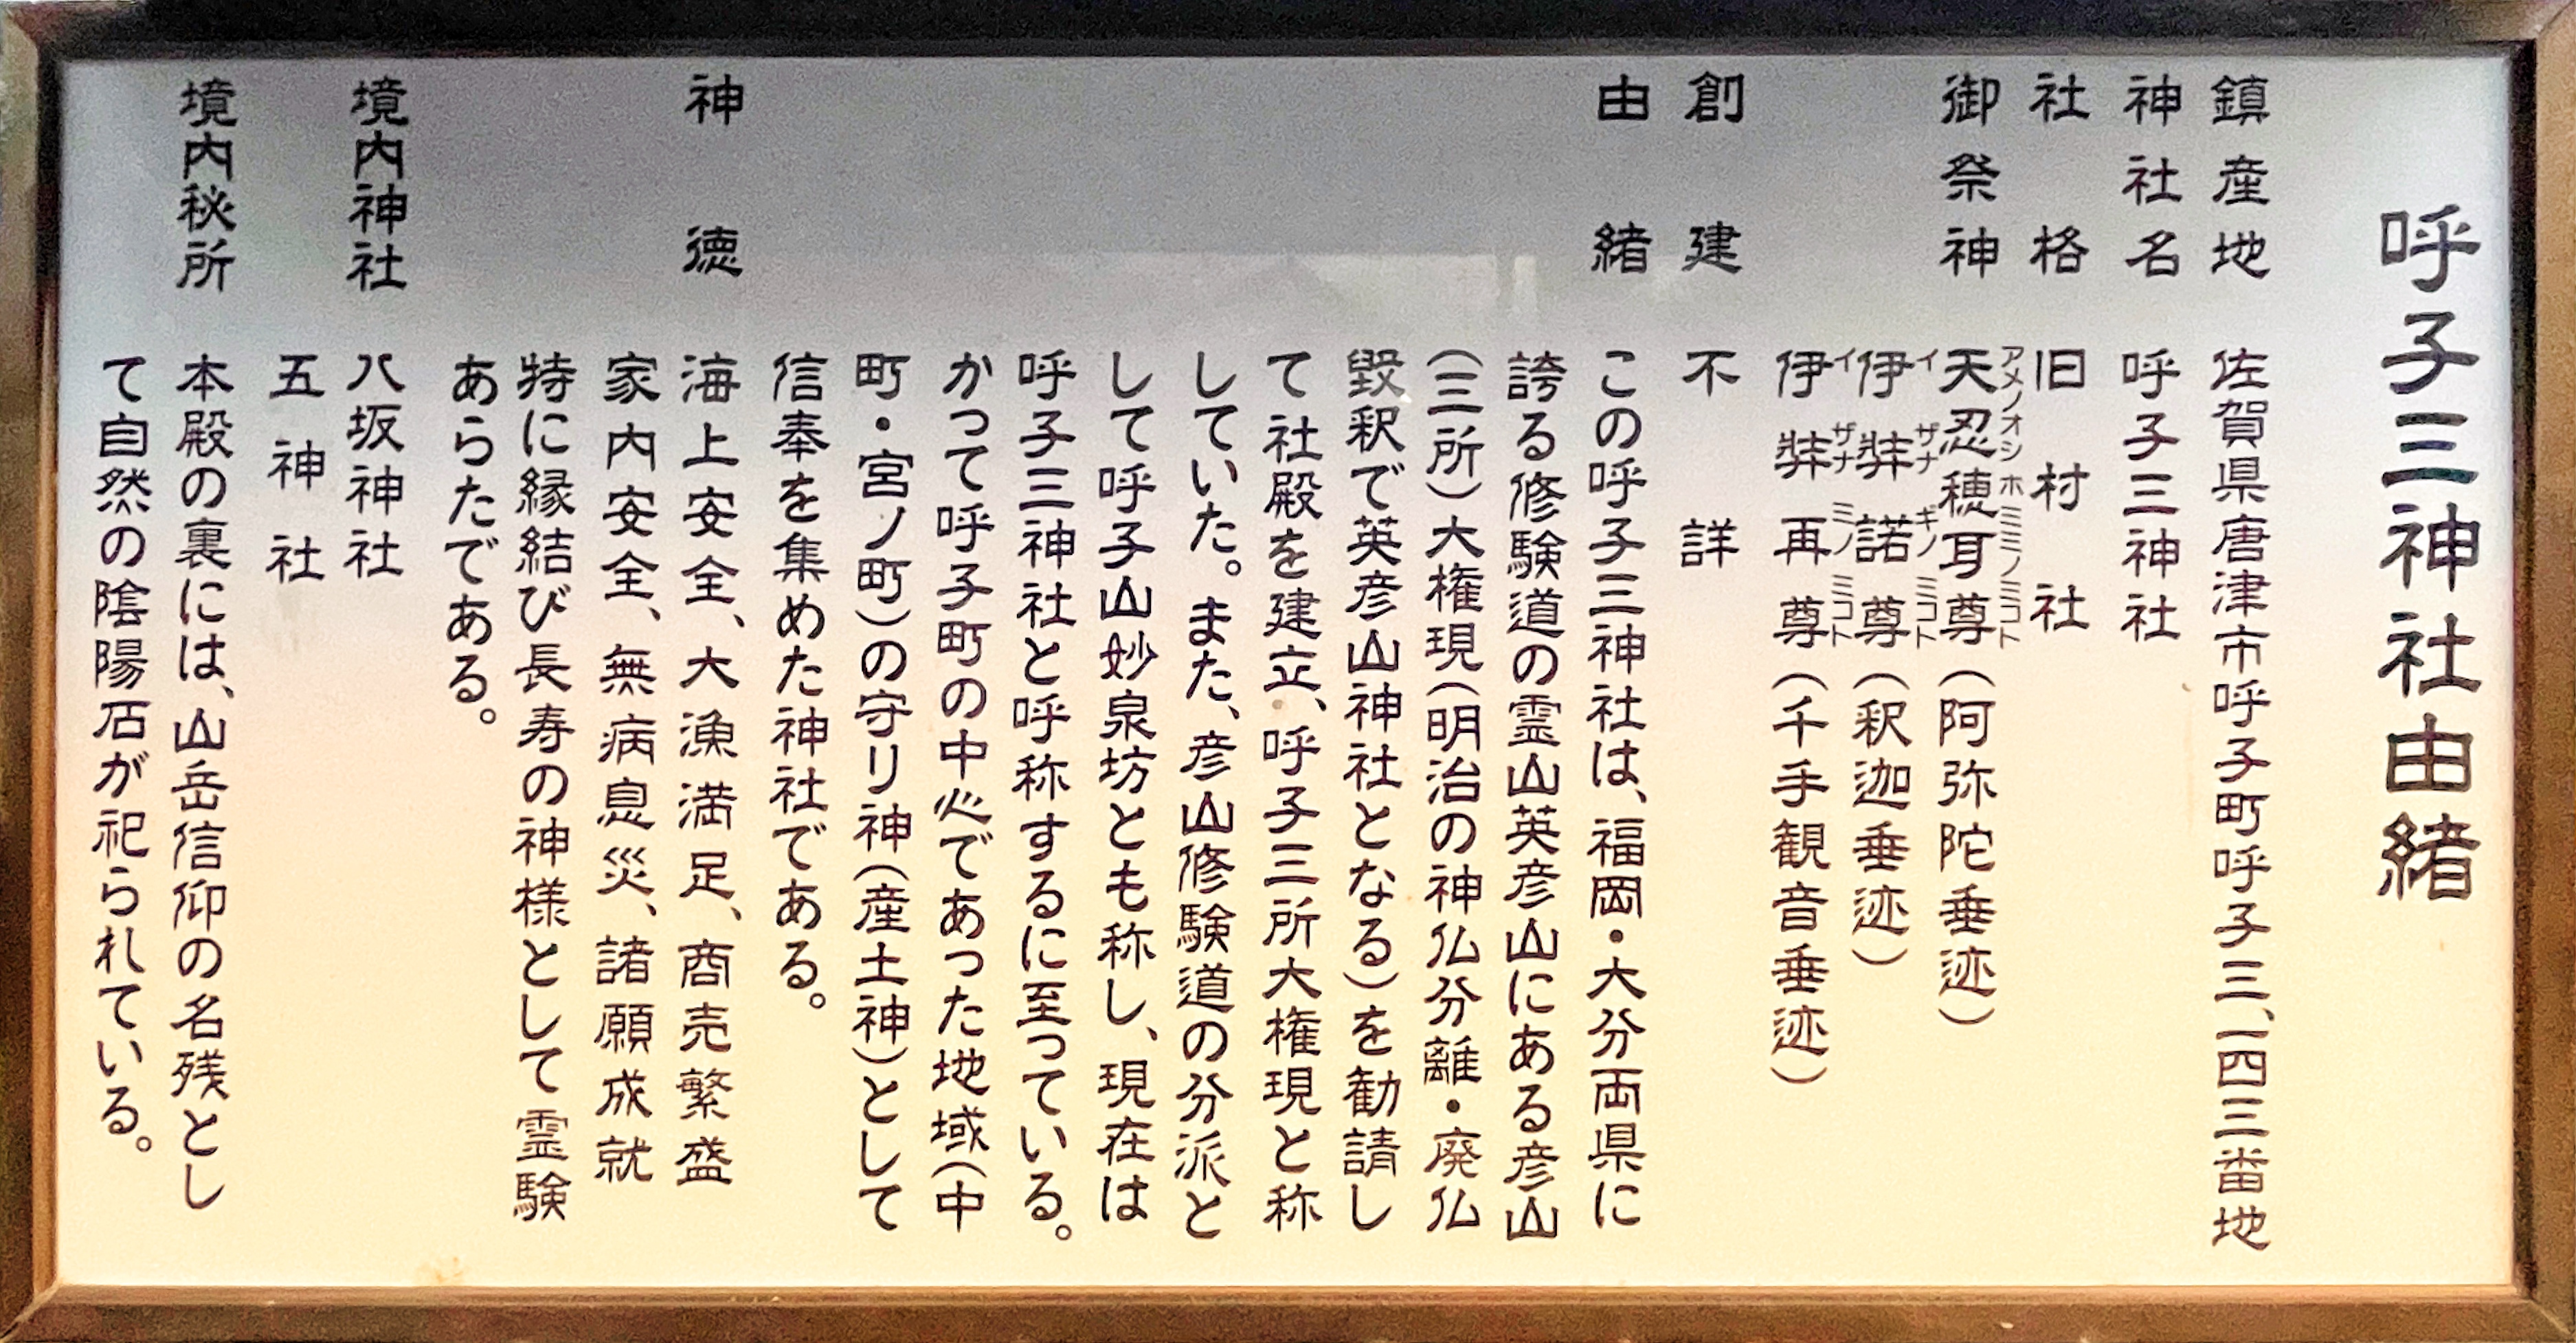 呼子三神社由緒
鎮産地 佐賀県唐津市呼子町呼子三、一四三番地
神社名 呼子三神社
社格 旧村社
御祭神 天忍穂耳尊(阿弥陀垂迹)
アメノオシホミミノミコト
伊弉諾尊(釈迦垂迹)
イザナギノミコト
伊弉再尊(千手観音垂迹)
イザナミノミコト
創建 不詳
由緒 この呼子三神社は、福岡・大分両県に
誇る修験道の霊山英彦山にある彦山
(三所)大権現(明治の神仏分離・廃仏
毀釈で英彦山神社となる)を勧請し
て社殿を建立、呼子三所大権現と称
していた。また、彦山修験道の分派と
して呼子山妙泉坊とも称し、現在は
呼子三神社と呼称するに至っている。
かつて呼子町の中心であった地域(中
町・宮ノ町)の守り神(産土神)として
信奉を集めた神社である。
神徳 海上安全、大漁満足、商売繁盛
家内安全、無病息災、諸願成就
特に縁結び長寿の神様として霊験
あらたである。
境内神社 八坂神社
五神社
境内秘所 本殿の裏には、山岳信仰の名残とし
て自然の陰陽石が祀られている。